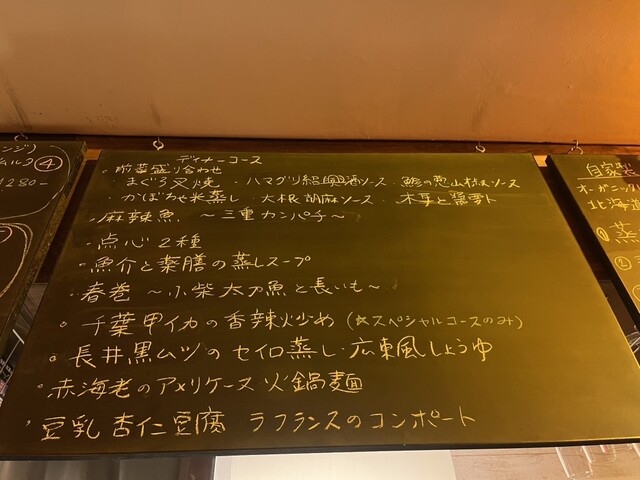 ディナーコース
・前菜盛り合わせ
まぐろ叉焼 ・ハマグリ紹興酒ソース ・鯵の葱山椒ソース
・かぼちゃ米蒸し ・大根胡麻ソース ・木耳と
・麻辣魚 〜三重カンパチ〜
・点心2種
・魚介と薬膳の蒸しスープ
・春巻 〜小柴太刀魚と長いも〜
・千葉甲イカの香辣炒め (☆スペシャルコースのみ)
・長井黒ムツのセイロ蒸し・広東風しょうゆ
・赤海老のアメリケース火鍋麺
・豆乳杏仁豆腐 ラフランスのコンポート
ンジ)
ムルク④
1280-
自家製
オーガニッ
北海道
①蒸
②